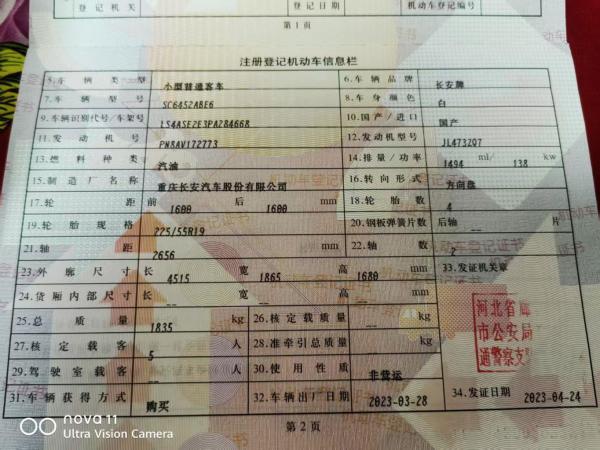 登记机关 登记日期 机动车登记编号
第 1 页
注册登记机动车信息栏
5.车辆类型 小型普通客车 6.车辆品牌 长安牌
7.车辆型号 SC6452ABE6 8.车身颜色 白
9.车辆识别代号/车架号 LS4ASE2E3PA284668 10.国产/进口 国产
11.发动机号 PN8AV172773 12.发动机型号 JL473ZQ7
13.燃料种类 汽油 14.排量/功率 1494 ml/ 138 kw
15.制造厂名称 重庆长安汽车股份有限公司 16.转向形式 方向盘
17.轮距 前 1600 后 1600 mm 18.轮胎数 4
19.轮胎规格 225/55R19 20.钢板弹簧片数 后轴 -- 片
21.轴距 2656 mm 22.轴数 2
23.外廓尺寸 长 4515 宽 1865 高 1680 mm 33.发证机关章
24.货厢内部尺寸 长 -- 宽 -- 高 -- mm
25.总质量 1835 kg 26.核定载质量 -- kg
27.核定载客 5 人 28.准牵引总质量 -- kg
河北省廊
市公安局
通警察支
29.驾驶室载客 -- 人 30.使用性质 非营运
31.车辆获得方式 购买 32.车辆出厂日期 2023-03-28 34.发证日期 2023-04-24
第 2 页
nova 11
Ultra Vision Camera